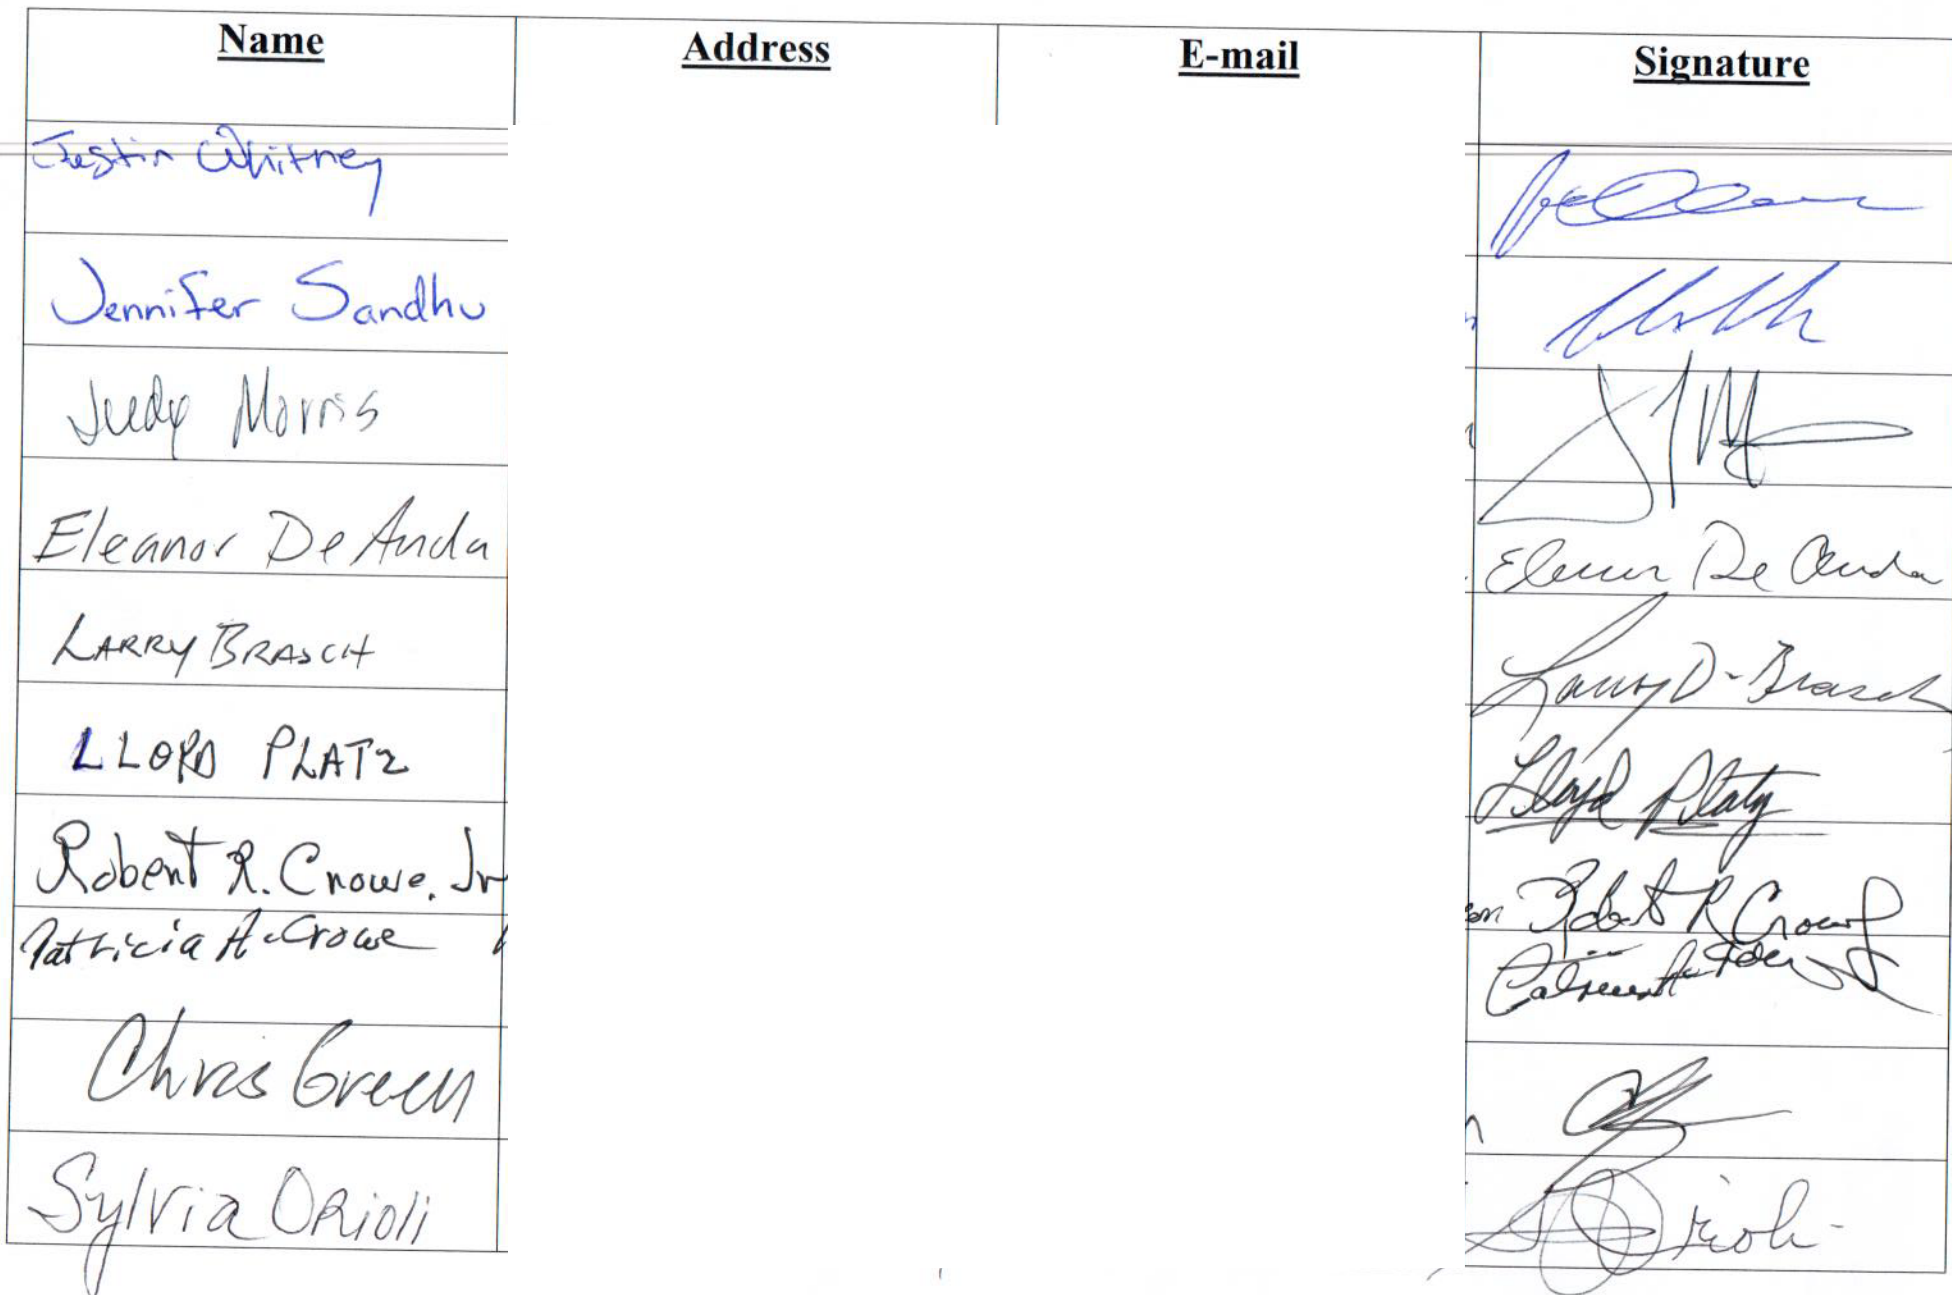 Name Address E-mail Signature
Justin Whitney
Jennifer Sandhu
Judy Morris
Eleanor De Anda Eleanor De Anda
LARRY BRASCH Larry D. Brasch
LLOYD PLATZ Lloyd Platz
Robert R. Crowe, Jr Robert R Crowe Jr
Patricia A. Crowe Patricia A. Crowe
Chris Green
Sylvia ORioli S Orioli